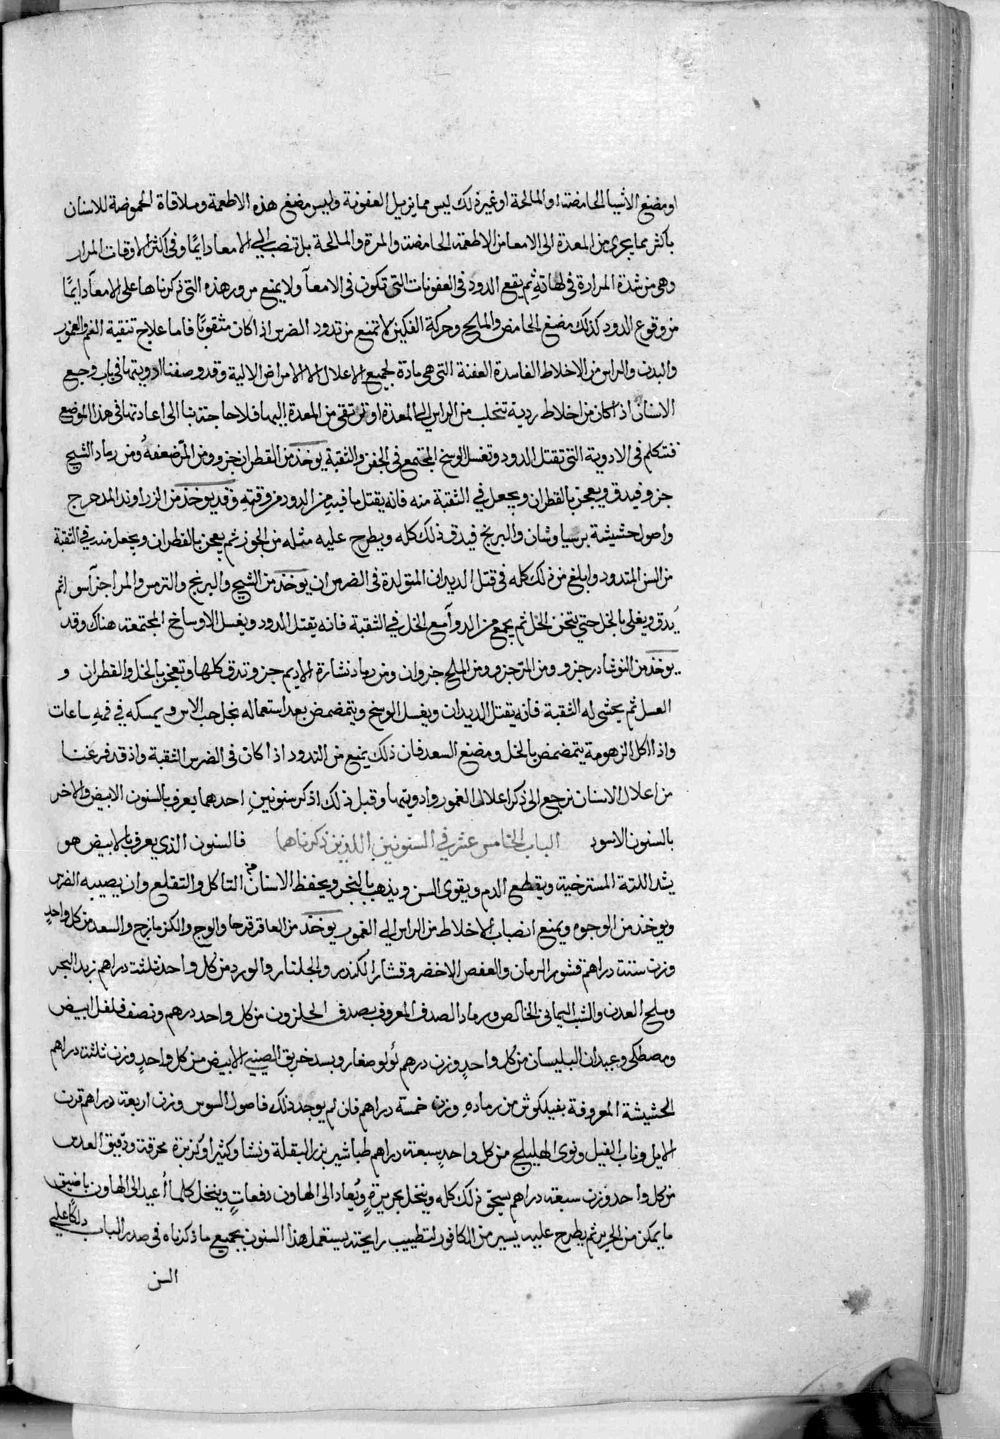 او مضغ الاشيا الحامضة او المالحة او غير ذلك ليس مما يزيل العفونة وليس مضغ هذه الاطعمة وملاقاة الحموضة للاسنان
باكثر مما يجري من المعدة الى الامعا من الاطعمة الحامضة والمرة والمالحة بل تنصب الى الامعا دايمًا وفي اكثر الاوقات المرار
وهو من شدة المرارة في لهاته ثم يقع الدود في العفونات التي تكون في الامعآ ولا يمنع مرور هذه التي ذكرناها على الامعآ دايمًا
من وقوع الدود كذلك مضغ الحامض والملح وحركة الفكين لا تمنع من تدود الضرس اذا كان مثقوبًا فاما علاج تنقية الفم والعمور
والبدن والراس من الاخلاط الفاسدة العفنة التي هي مادة لجميع الاعلال الامراض الالية وقد وصفنا ادويتها في باب وجع
الاسنان اذا كان من اخلاط ردية تتحلب من الراس الى المعدة او ترتقي من المعدة اليها فلا حاجة بنا الى اعادتها في هذا الموضع
فنتكلم في الادوية التي تقتل الدود وتغسل الوسخ المجتمع في الجفن والثقبة يوخذ من القطران جزو ومن المرّ ضعفهُ ومن رماد الشيح
جزو فيدق ويعجن بالقطران ويجعل في الثقبة منه فانه يقتل ما فيه من الدود من وقته وقد يوخذ من الزراوند المدحرج
واصول حشيشة برسياوشان والبرنج فيدق ذلك كله ويطرح عليه مثله من الجوز ثم يعجن بالقطران ويجعل منه في الثقبة
من السن المتدود وابلغ من ذلك كله في قتل الديدان المتولدة في الضرس ان يوخذ من الشيح والبرنج والترمس والمر اجزآ سوا ثم
يُدق ويغلى بالخل حتي يثخن الخل ثم يجمع من الدوآ مع الخل في الثقبة فانه يقتل الدود ويغسل الاوساخ المجتمعة هناك وقد
يوخذ من النوشادر جزو ومن المرّ جزو ومن الملح جزوان ومن رماد نشارة الاديم جزو وتدق كلها وتعجن بالخل والقطران و
العسل ثم يحشى له الثقبة فانه يقتل الديدان ويغسل الوسخ ويتمضمض بعد استعماله بخل حب الاس ويمسكه في فمه ساعات
واذا اكل الزهومة يتمضمض بالخل ومضغ السعد فان ذلك يمنع من التدود اذا كان في الضرس الثقبة واذ قد فرغنا
من اعلال الاسنان نرجع الى ذكر اعلال العمور وادويتها وقبل ذلك اذكر سنونين احدهما يعرف بالسنون الابيض والاخر
بالسنون الاسود الباب الخامس عشر في السنونين اللذين ذكرناهما فالسنون الذي يعرف بالابيض هو
يشد اللثة المسترخية ويقطع الدم ويقوى السن ويذهب بالبخر ويحفظ الاسنان من التاكل والتقلع وان يصيبه الضرس
ويوخذ من الوجوه ويمنع انصباب الاخلاط من الراس الى العمور يوخذ من العاقرقرحا والوج والكزمازج والسعد من كل واحدٍ
وزن ستة دراهم قشور الرمان والعفص الاخضر وقشار الكندر والجلنار والورد من كل واحد ثلثة دراهم زبد البحر
وملح العدن والشب اليماني الخالص ورماد الصدف المعروف بصدف الحلزون من كل واحد درهم ونصف فلفل ابيض
ومصطكى وعيدان البليسان من كل واحدٍ وزن درهم لولو صغار وبسد خربق الصيني الابيض من كل واحدٍ وزن ثلثة دراهم
الحشيشة المعروفة بفيلكوش من رماده وزن خمسة دراهم فان لم يوجد ذلك فاصول السوس وزن اربعة دراهم قرن
الايل وناب الفيل ونوى الهليلج من كل واحدٍ سبعة دراهم طباشير بزر البقلة ونشا وكثيرا وكزبرة محرقة ودقيق العدس
من كل واحد وزن سبعة دراهم يسحق ذلك كله وينخل بحريرةٍ ويُعاد الى الهاون دفعاتٍ وينخل كلما أعيد الى الهاون باضيق
ما يمكن من الحرير ثم يطرح عليه يسير من الكافور لتطييب رايحته يستعمل هذا السنون بجميع ما ذكرناه في صدر الباب دلكًا على
السن